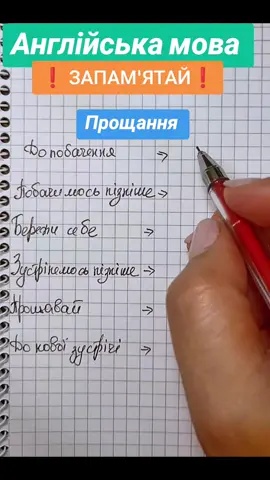 Англійська мова
❗ ЗАПАМ'ЯТАЙ❗
Прощання
До побачення →
Побачимось пізніше →
Бережи себе →
Зустрінемось пізніше →
Прощавай →
До нової зустрічі →